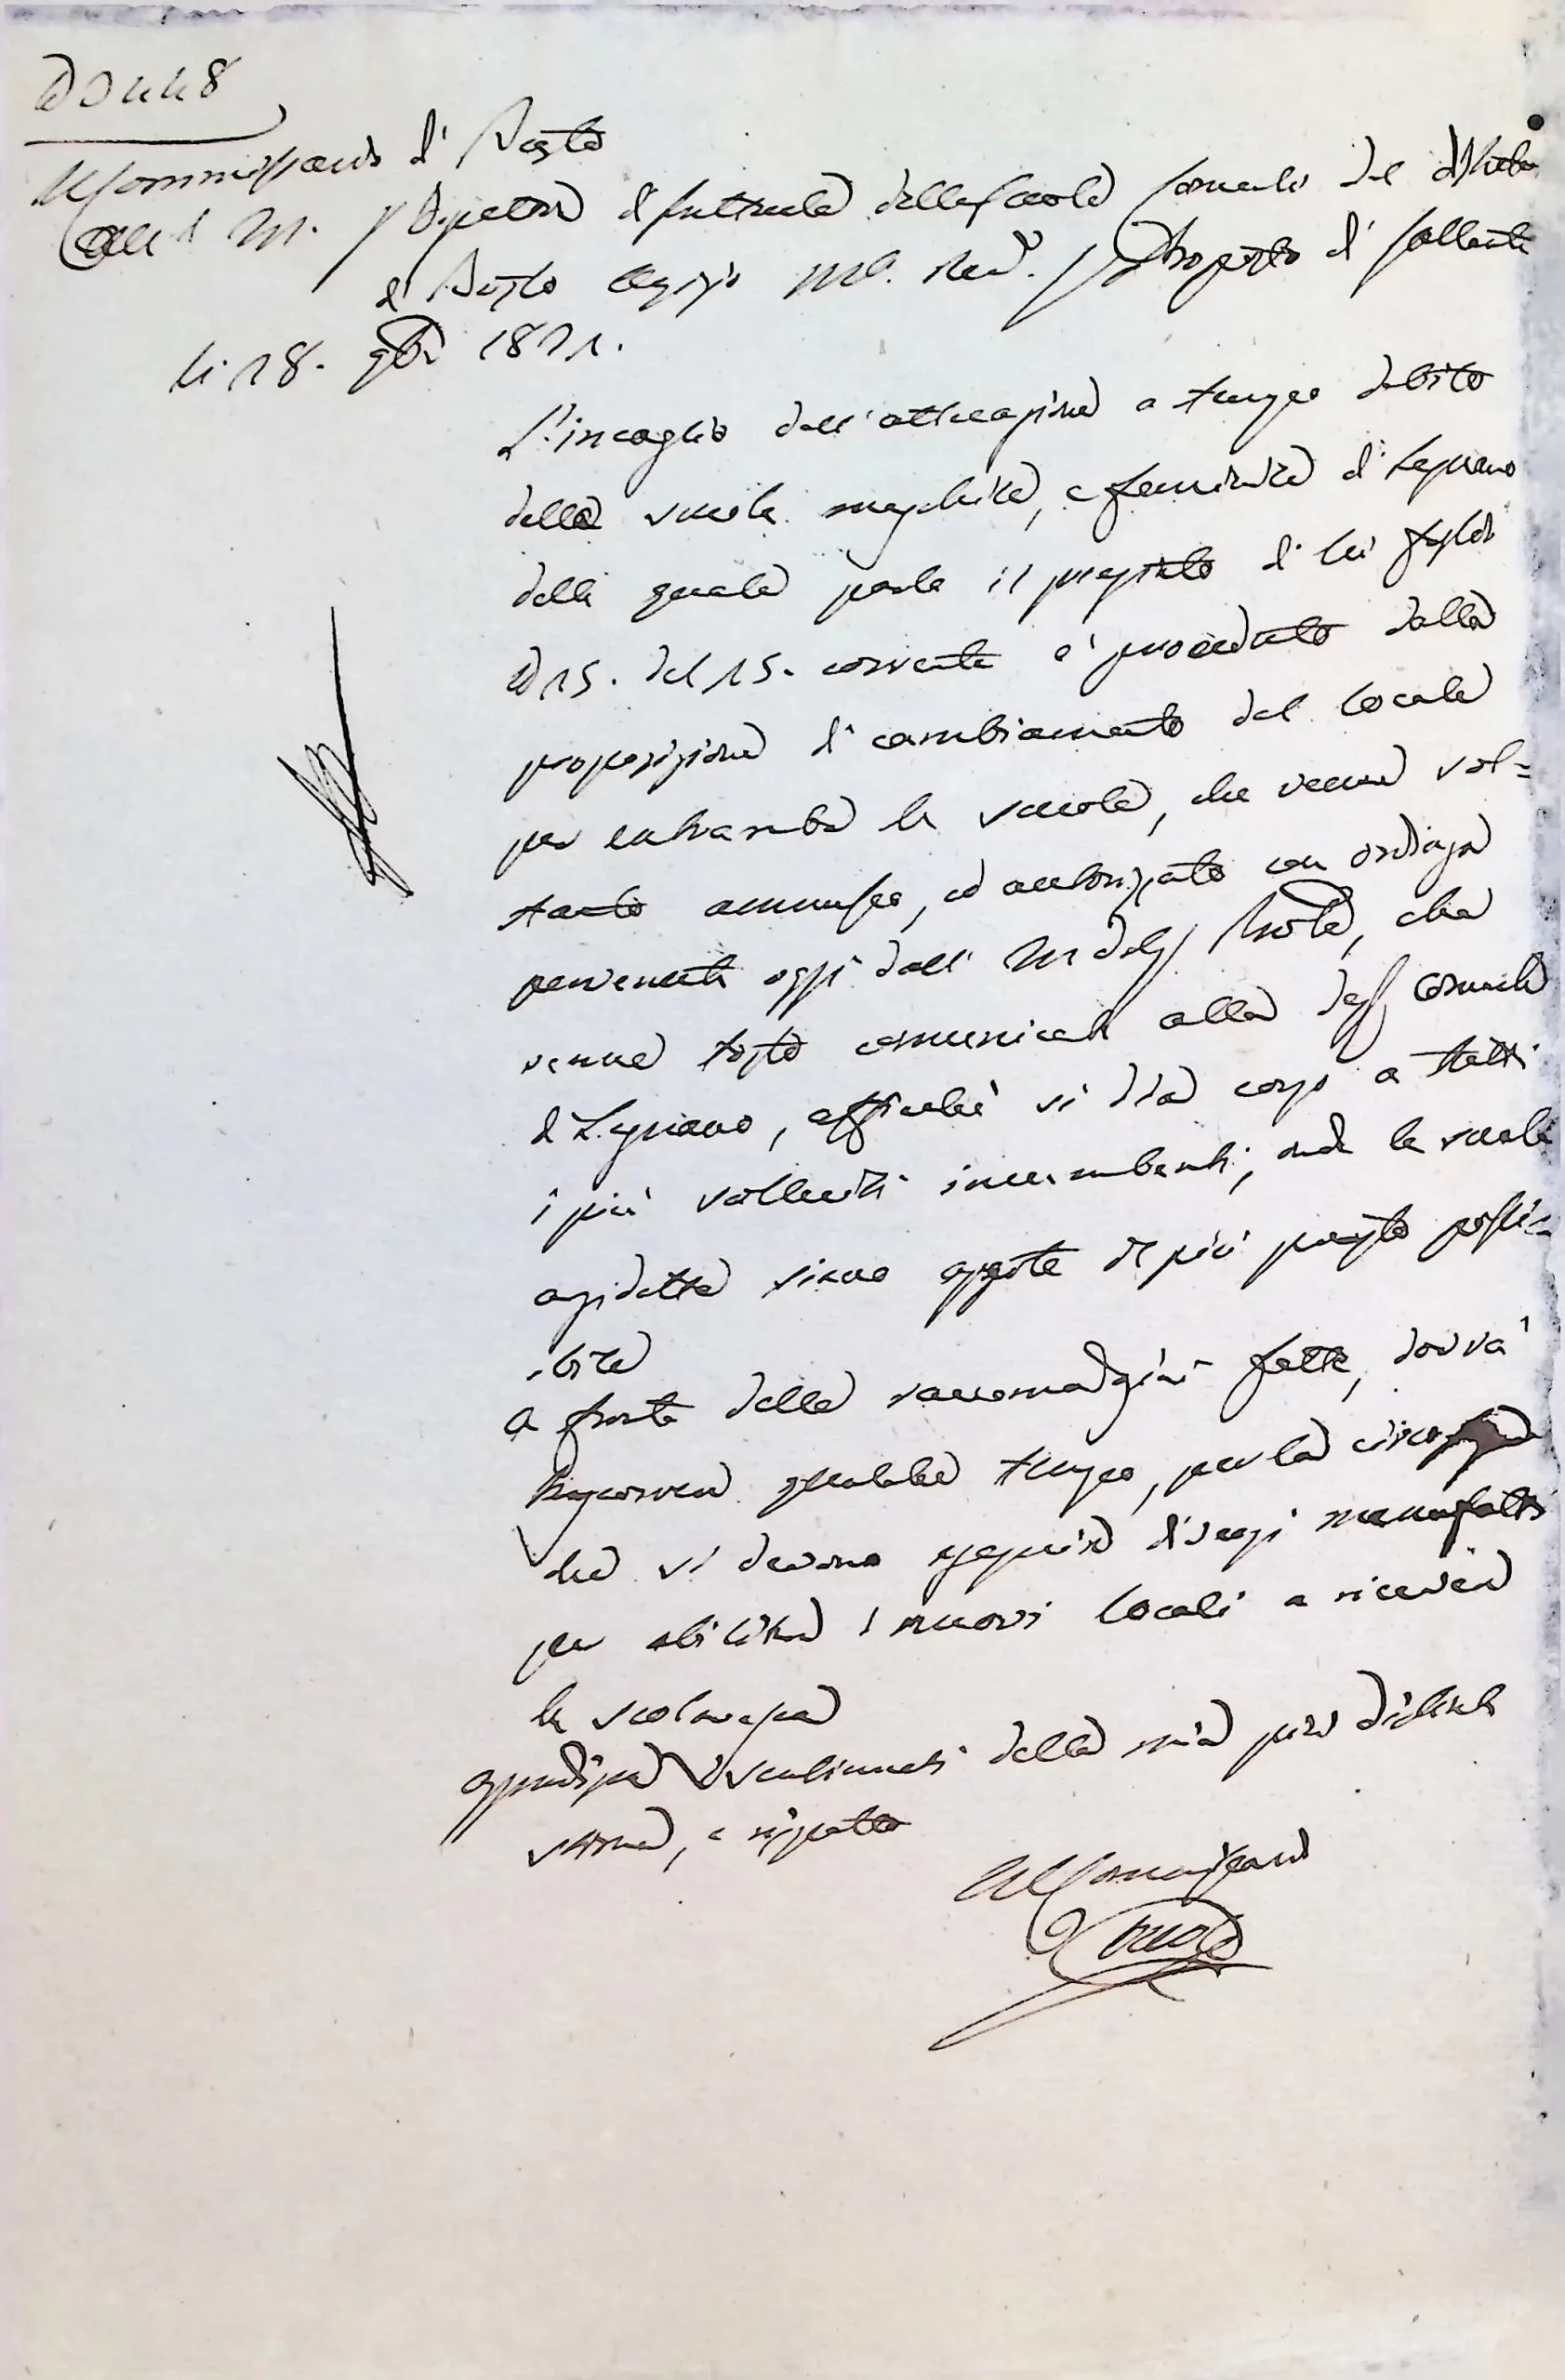 Il Commissario di Busto
All' I. R. Ispettore delle Scuole Comunali del distretto
di Busto Arsizio M.o Rev.o Sig. Proposto di
li 18. 9bre 18
L'incaglio dell'attivazione a tempo debito
delle scuole maschile, e feminile di Legnano
delle quale parla il pregiato di lei foglio
N 15. del 15. corrente è proceduto dalla
proposizione di cambiamento del locale
per entrambe le scuole, che venne sol=
tanto ammessa, ed autorizzata con ordinanza
pervenuta oggi dall' che
venne tosto comunicata alla Dep. Comunale
di Legnano, affinché si dia corso a tutti
i più solleciti incumbenti, onde le scuole
anzidette siano aperte il più presto possi=
ibile
A fronte delle raccomandazioni fatte, dovrà
trascorrere qualche tempo, per la circostanza
che si devono eseguire diversi manufatti
per abilitare i nuovi locali a ricevere
le scolaresche
Aggradisca i sentimenti della mia più distinta
stima, e rispetto
Il Commissario